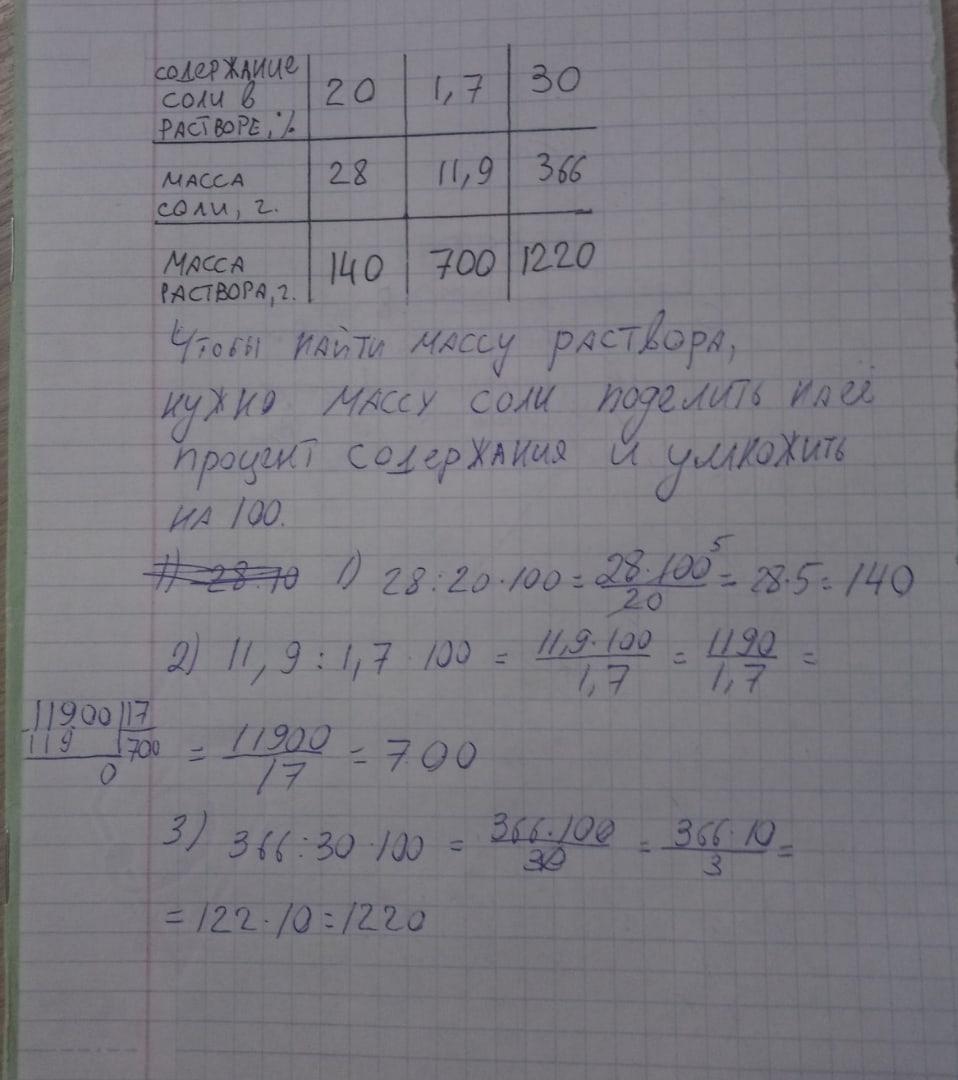 СОДЕРЖАНИЕ СОЛИ В РАСТВОРЕ, % 20 1,7 30
МАССА СОЛИ, г. 28 11,9 366
МАССА РАСТВОРА, г. 140 700 1220
Чтобы найти массу раствора,
нужно массу соли поделить на её
процент содержания и умножить
на 100.
1) 28:20·100 = 28·100⁵/20 = 28·5 = 140
2) 11,9 : 1,7 · 100 = 11,9·100/1,7 = 1190/1,7 =
11900 17
119 700
0
= 11900/17 = 700
3) 366:30·100 = 366·100/30 = 366·10/3 =
= 122·10 = 1220